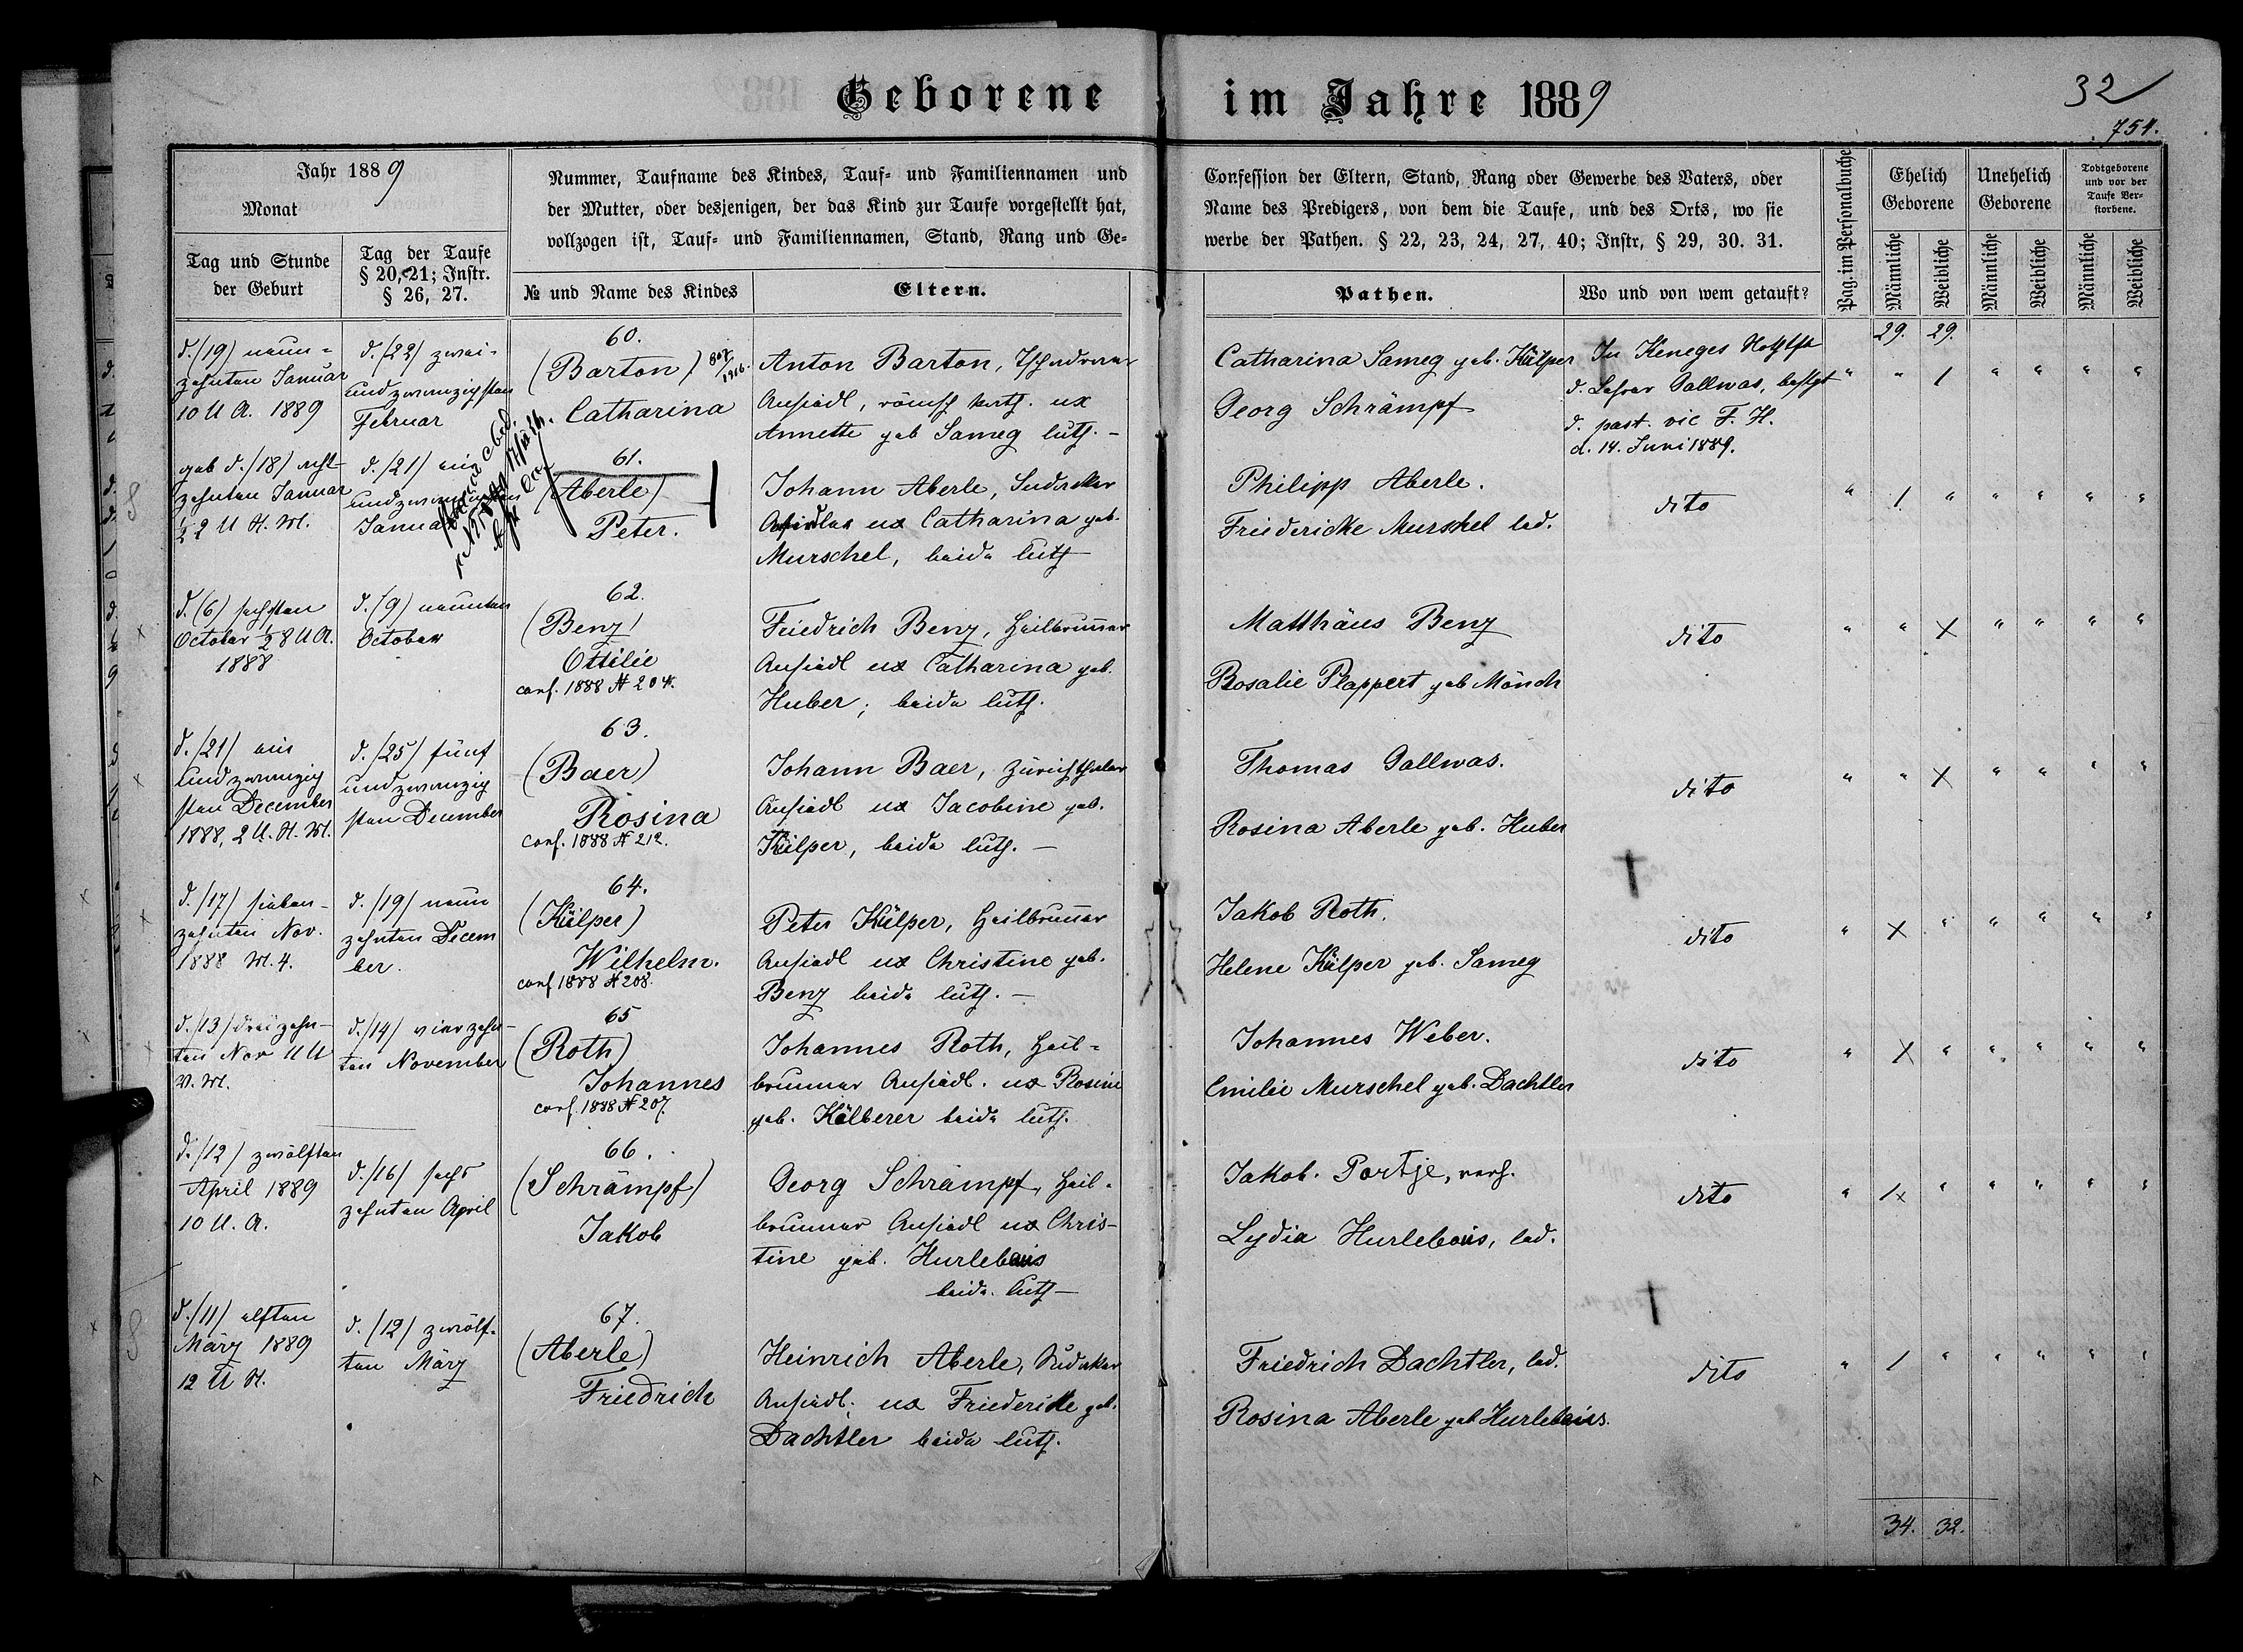 Geborene im Jahre 1889
32
754.
Jahr 1889
Monat
Tag und Stunde
der Geburt
Tag der Taufe
§ 20, 21; Instr.
§ 26, 27.
Nummer, Taufname des Kindes, Tauf- und Familiennamen und
der Mutter, oder desjenigen, der das Kind zur Taufe vorgestellt hat,
vollzogen ist, Tauf- und Familiennamen, Stand, Rang und Ge-
№ und Name des Kindes
Eltern.
Confession der Eltern, Stand, Rang oder Gewerbe des Vaters, oder
Name des Predigers, von dem die Taufe, und des Orts, wo sie
werbe der Pathen. § 22, 23, 24, 27, 40; Instr, § 29, 30. 31.
Pathen.
Wo und von wem getauft?
Pag. im Personalbuche
Ehelich
Geborene
Unehelich
Geborene
Todtgeborene
und vor der
Taufe Ver-
storbene.
Männliche
Weibliche
Männliche
Weibliche
Männliche
Weibliche
29. 29.
d. (19) neun-
zehnten Januar
10 U A. 1889
d. (22) zwei-
undzwanzigsten
Februar
60.
(Barton)
Catharina
Anton Barton,
Ansiedl, römisch kath. ux
Annette geb Sameg luth. –
Catharina Sameg geb. Külper
Georg Schrämpf
In Keneges
d. Lehrer Gallwas, bestgt
d. past. vic F. H.
d. 14. Juni 1889.
" " 1 " " " "
geb d. (18) acht
zehnten Januar
½ 2 U N. M.
d. (21) ein
undzwanzigsten
Januar
61.
(Aberle)
Peter.
Johann Aberle, Sudaker
Ansiedler ux Catharina geb.
Murschel, beide luth
Philipp Aberle.
Friedericke Murschel led.
dito
" 1 " " " " "
d. (6) sechsten
October ½ 8 U A.
1888
d. (9) neunten
October
62.
(Benz)
Ottilie
conf. 1888 № 204.
Friedrich Benz, Heilbrunner
Ansiedl ux Catharina geb.
Huber; beide luth.
Matthäus Benz
Rosalie Plappert geb Mönch
dito
" " X " " " "
d. (21) ein
undzwanzig
sten December
1888, 2 U. N. M.
d. (25) fünf
undzwanzig
sten December
63.
(Baer)
Rosina
conf. 1888 № 212.
Johann Baer, Zürichthaler
Ansiedl ux Jacobine geb.
Külper, beide luth. –
Thomas Gallwas.
Rosina Aberle geb. Huber
dito
" " X " " " "
d. (17) sieben-
zehnten Nov.
1888 M. 4.
d. (19) neun
zehnten Decem
ber.
64.
(Külper)
Wilhelm.
conf 1888 № 208.
Peter Külper, Heilbrunner
Ansiedl ux Christine geb.
Benz beide luth. –
Jakob Roth.
Helene Külper geb. Sameg
dito
" X " " " " "
d. (13) dreizehn-
ten Nov 11 U
V. M.
d. (14) vierzehn-
ten November
65
(Roth)
Johannes
conf. 1888 № 207.
Johannes Roth, Heil-
brunner Ansiedl. ux Rosine
geb. Kälberer beide luth.
Johannes Weber.
Emilie Murschel geb. Dachtler
dito
" X " " " " "
d. (12) zwölften
April 1889
10 U. A.
d. (16) sechs
zehnten April
66.
(Schrämpf)
Jakob
Georg Schrämpf, Heil-
brunner Ansiedl ux Chris-
tine geb. Hurlebaus
beide luth –
Jakob Portje, verh.
Lydia Hurlebaus, led.
dito
" 1x " " " " "
d. (11) elften
März 1889
12 U N.
d. (12) zwölf-
ten März
67.
(Aberle)
Friedrich
Heinrich Aberle, Sudaker
Ansiedl. ux Friedericke geb.
Dachtler beide luth.
Friedrich Dachtler, led.
Rosina Aberle geb Hurlebaus.
dito
" 1 " " " " "
34. 32.